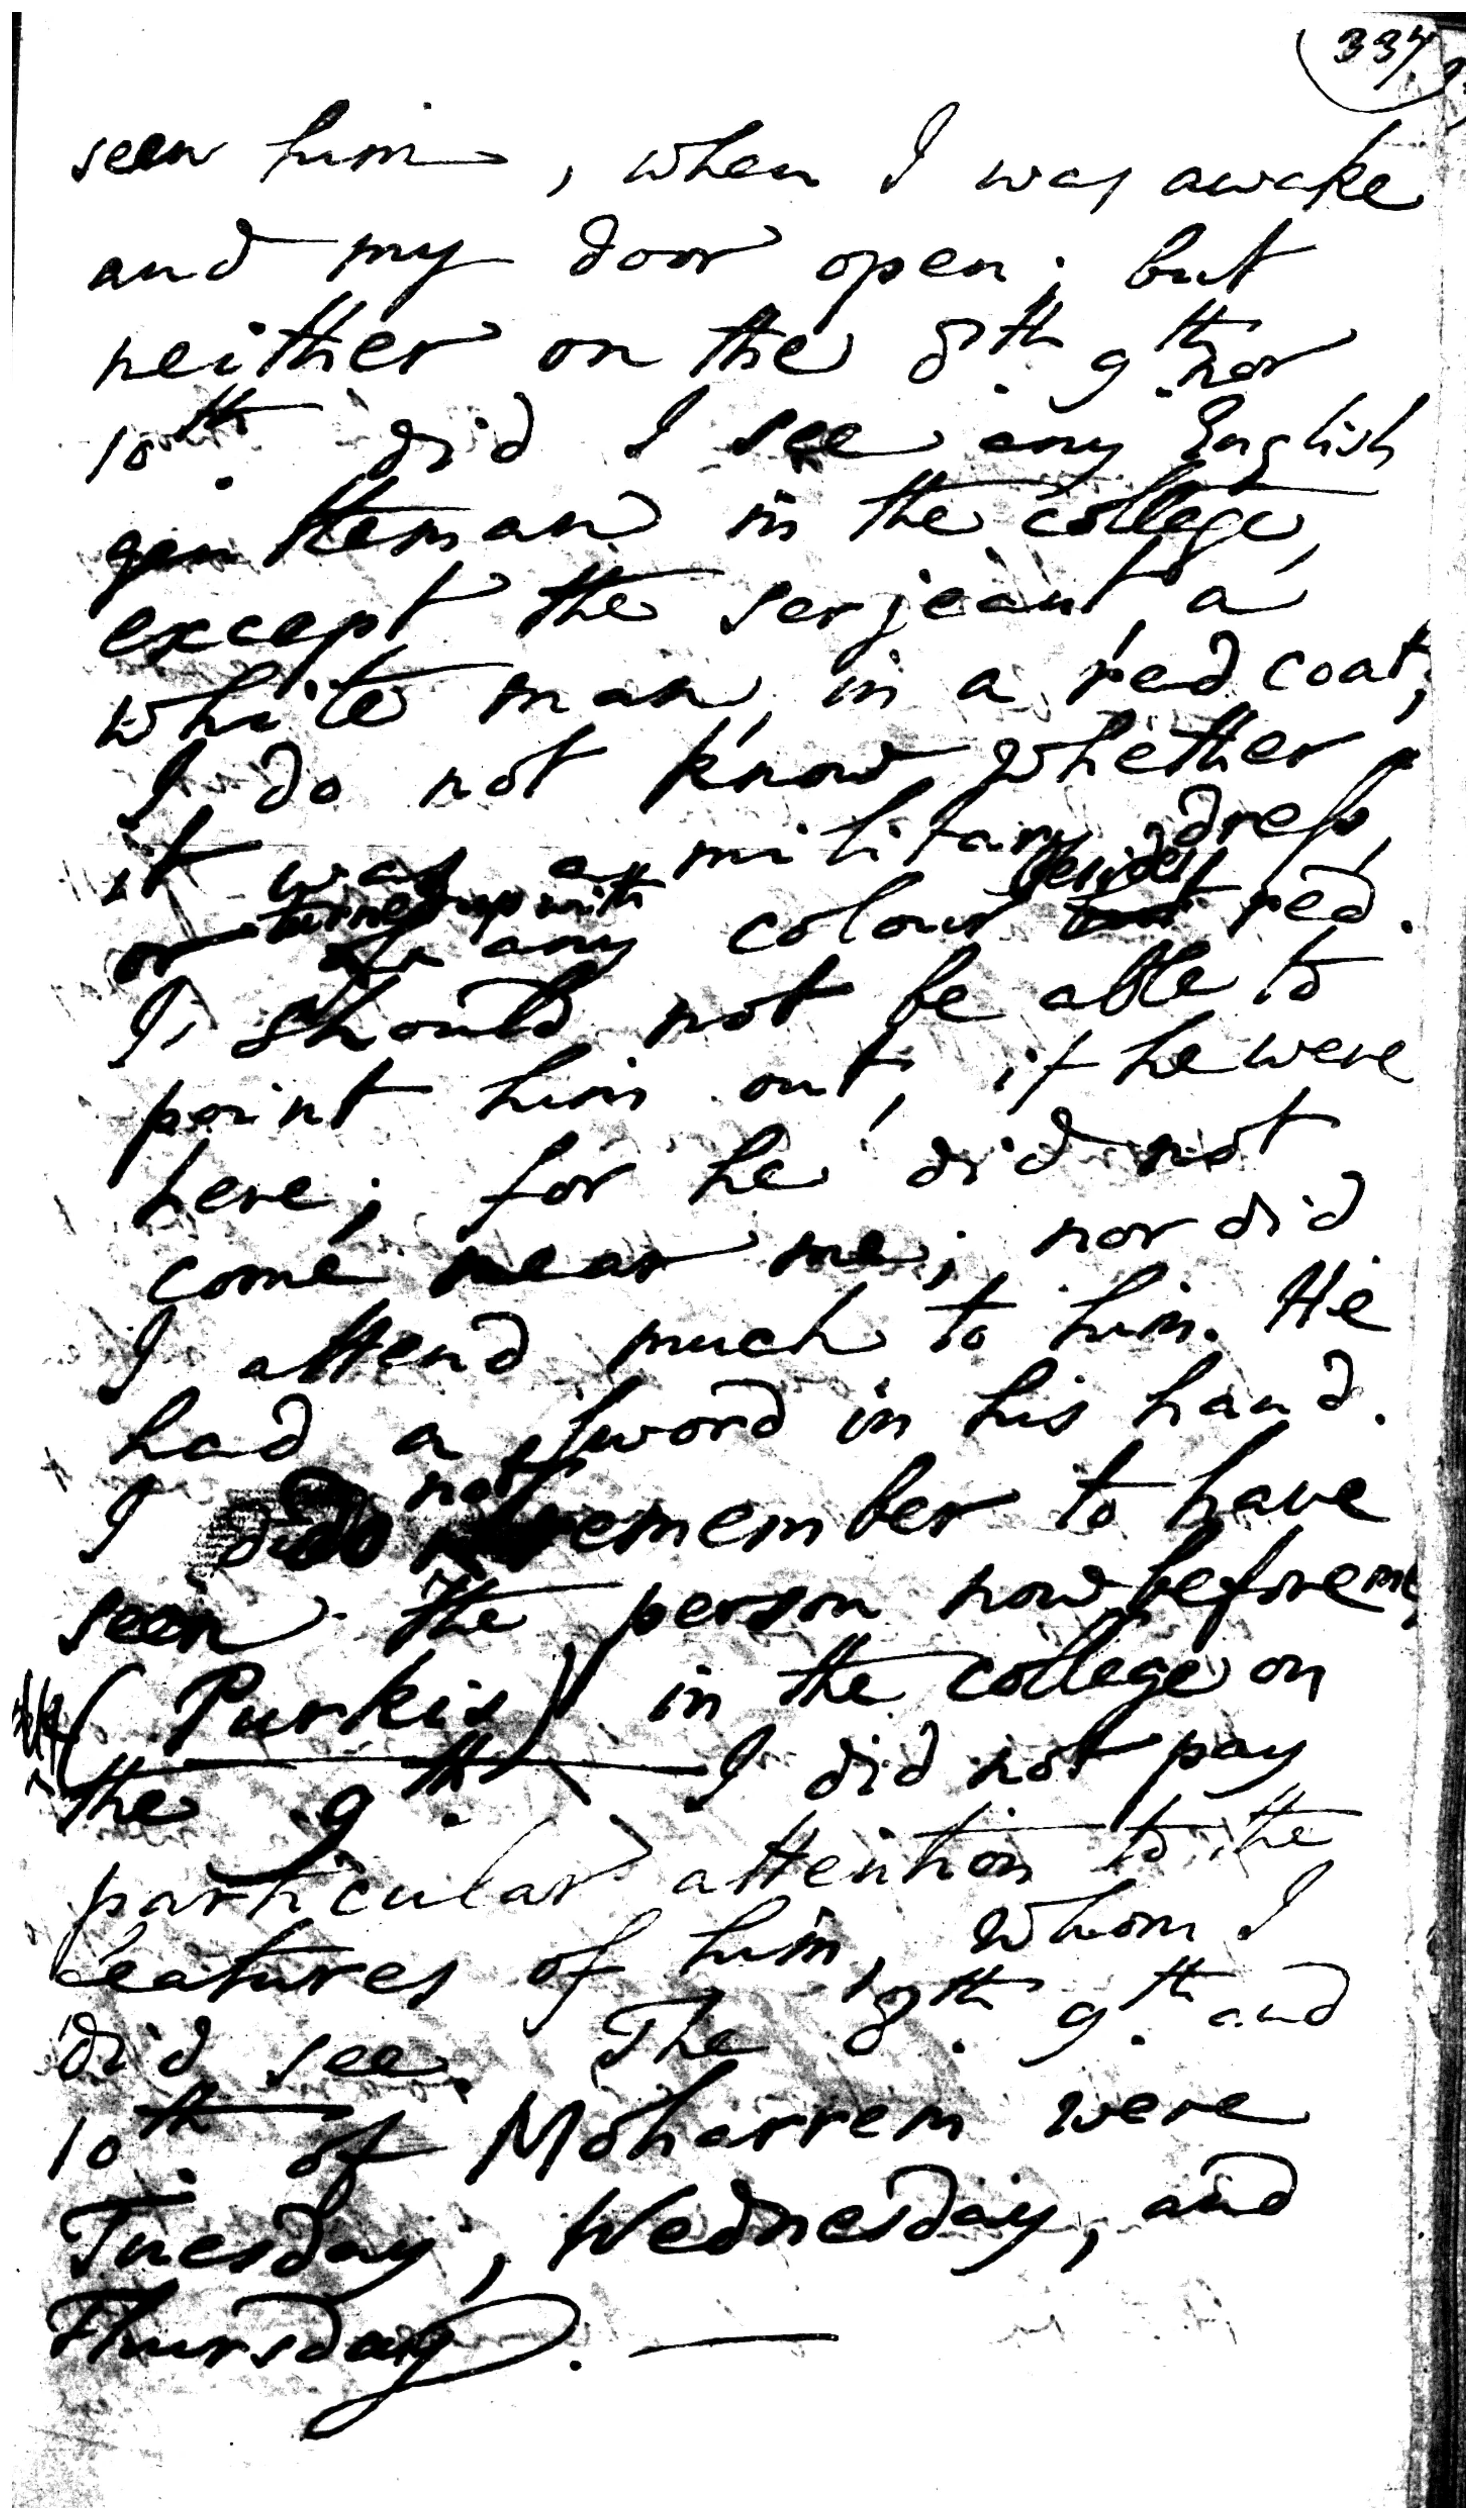 337
seen him, when I was awake
and my door open; but
neither on the 8th. 9th. nor
10th. did I see any English
gentleman in the college,
except the serjeant, a
white man, in a red coat;
I do not know, whether
it was a military dress,
turned up with besides
or any colour red.
I should not be able to
point him out, if he were
here; for he did not
come near me; nor did
I attend much to him. He
had a sword in his hand.
not
I do remember to have
seen the person now before me,
(Purkis) in the college on
the 9th. I did not pay
particular attention to the
features of him, whom I
did see. The 8th. 9th. and
10th. of Moharrem were
Tuesday, Wednesday, and
Thursday.